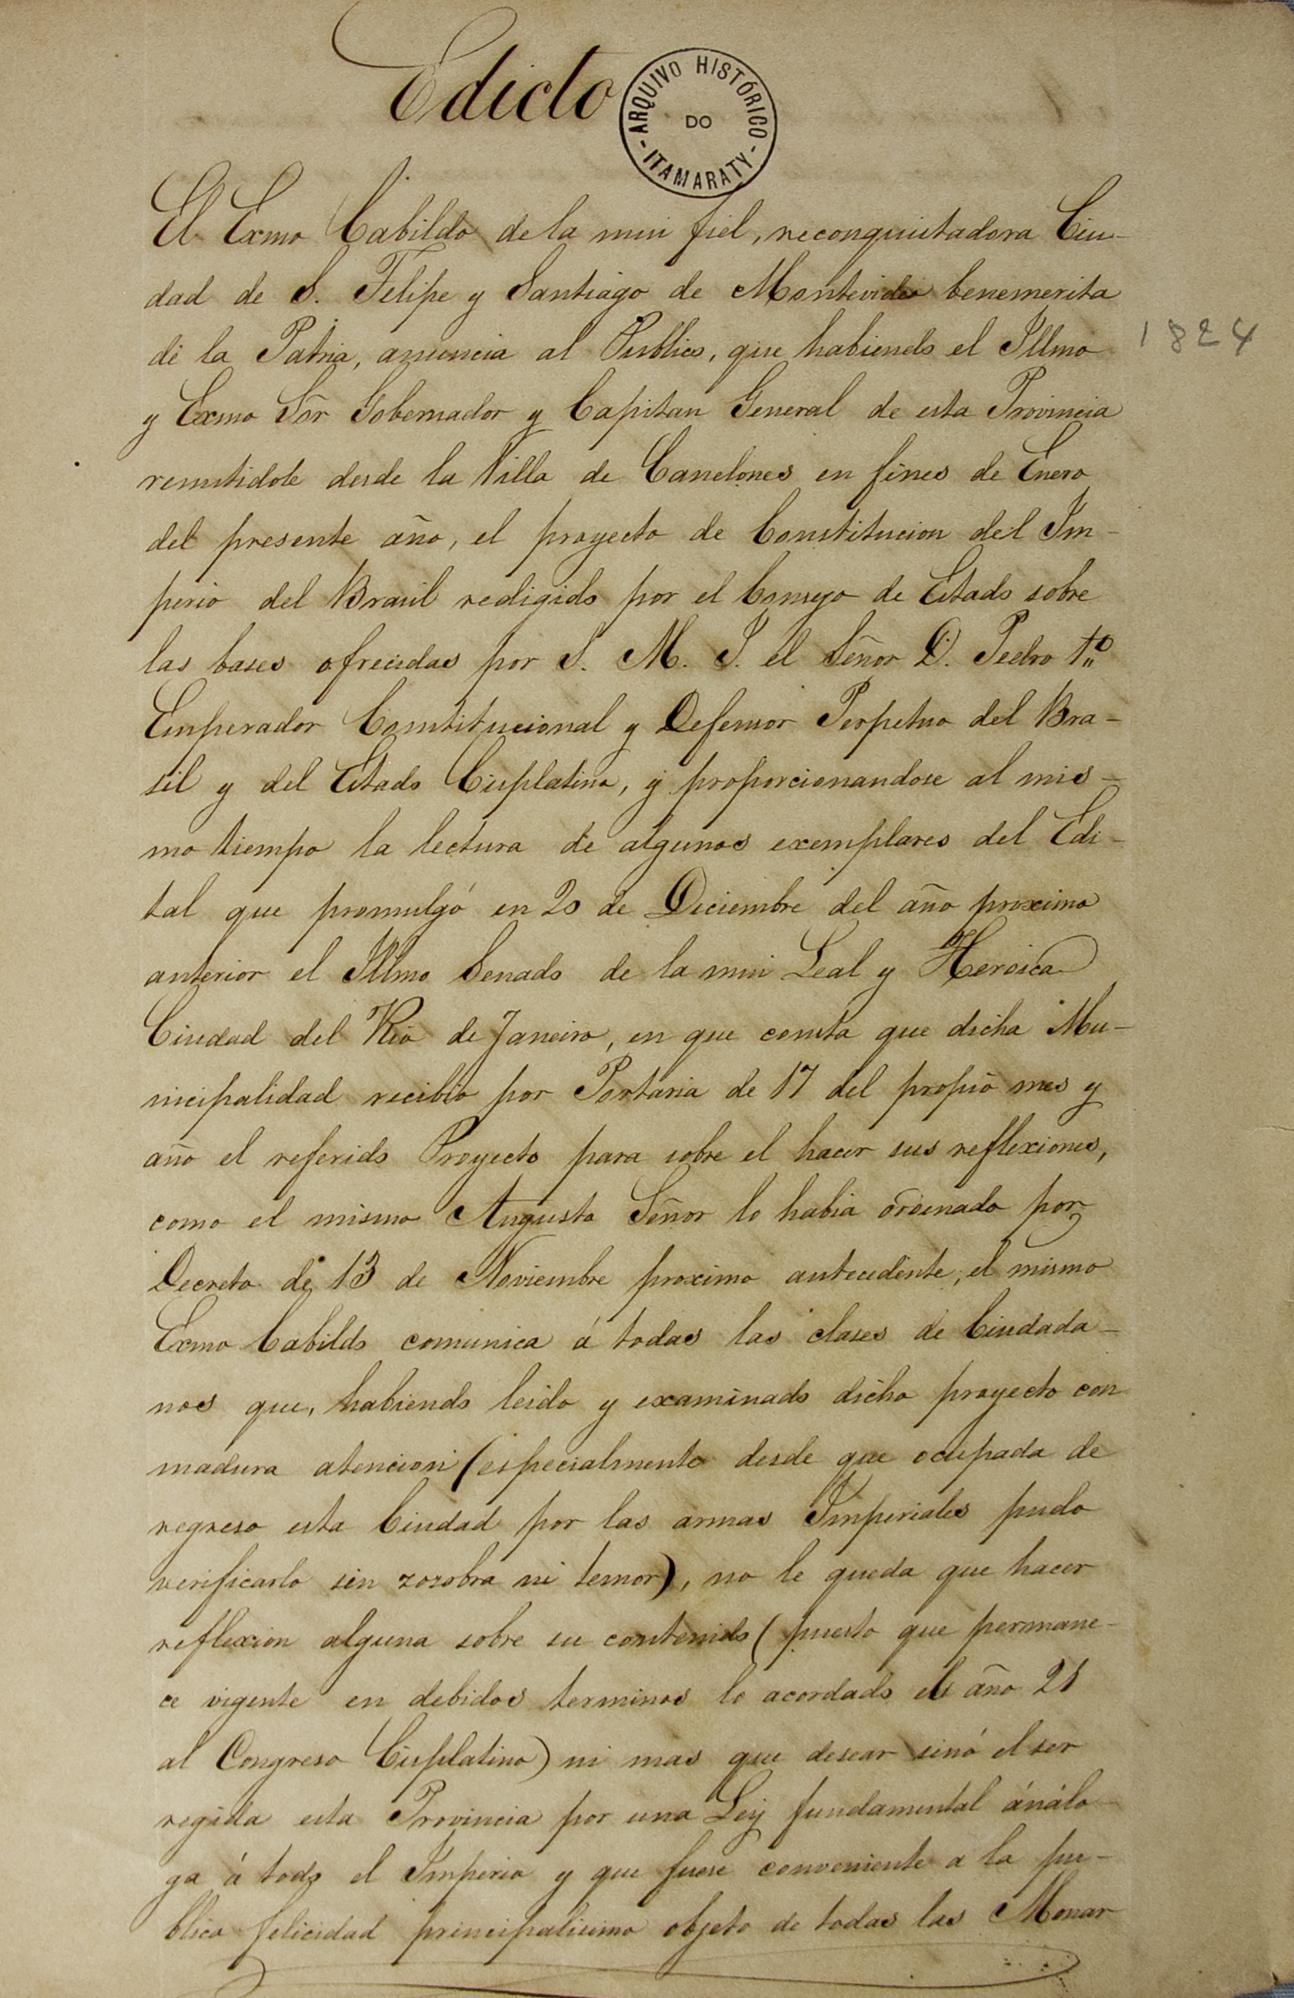 Edicto
ARQUIVO HISTÓRICO
DO
- ITAMARATY -
El Exmo Cabildo de la mui fiel, reconquistadora Ciu-
dad de S. Felipe y Santiago de Montevideo benemerita
de la Patria, anuncia al Publico, que habiendo el Illmo
1824
y Exmo Sõr Gobernador y Capitan General de esta Provincia
remitidole desde la Villa de Canelones en fines de Enero
del presente año, el proyecto de Constitucion del Im-
perio del Brasil redigido por el Consejo de Estado sobre
las bases ofrecidas por S. M. I. el Señor D. Pedro 1º
Emperador Constitucional y Defensor Perpetuo del Bra-
sil y del Estado Cisplatino, y proporcionandose al mis-
mo tiempo la lectura de algunos exemplares del Edi-
tal que promulgó en 20 de Diciembre del año proximo
anterior el Illmo Senado de la mui Leal y Heroica
Ciudad del Rio de Janeiro, en que consta que dicha Mu-
nicipalidad recibió por Portaria de 17 del propio mes y
año el referido Proyecto para sobre el hacer sus reflexiones,
como el mismo Augusto Señor lo habia ordenado por
Decreto de 13 de Noviembre proximo antecedente, el mismo
Exmo Cabildo comunica á todas las clases de Ciudada-
nos que, habiendo leido y examinado dicho proyecto con
madura atencion (especialmente desde que ocupada de
regreso esta Ciudad por las armas Imperiales pudo
verificarlo sin zozobra ni temor), no le queda que hacer
reflexion alguna sobre su contenido (puesto que permane-
ce vigente en debidos terminos lo acordado el año 21
al Congreso Cisplatino) ni mas que desear sinó el ser
regida esta Provincia por una Ley fundamental análo-
ga á todo el Imperio y que fuese conveniente a la pu-
blica felicidad principalisimo objeto de todas las Monar